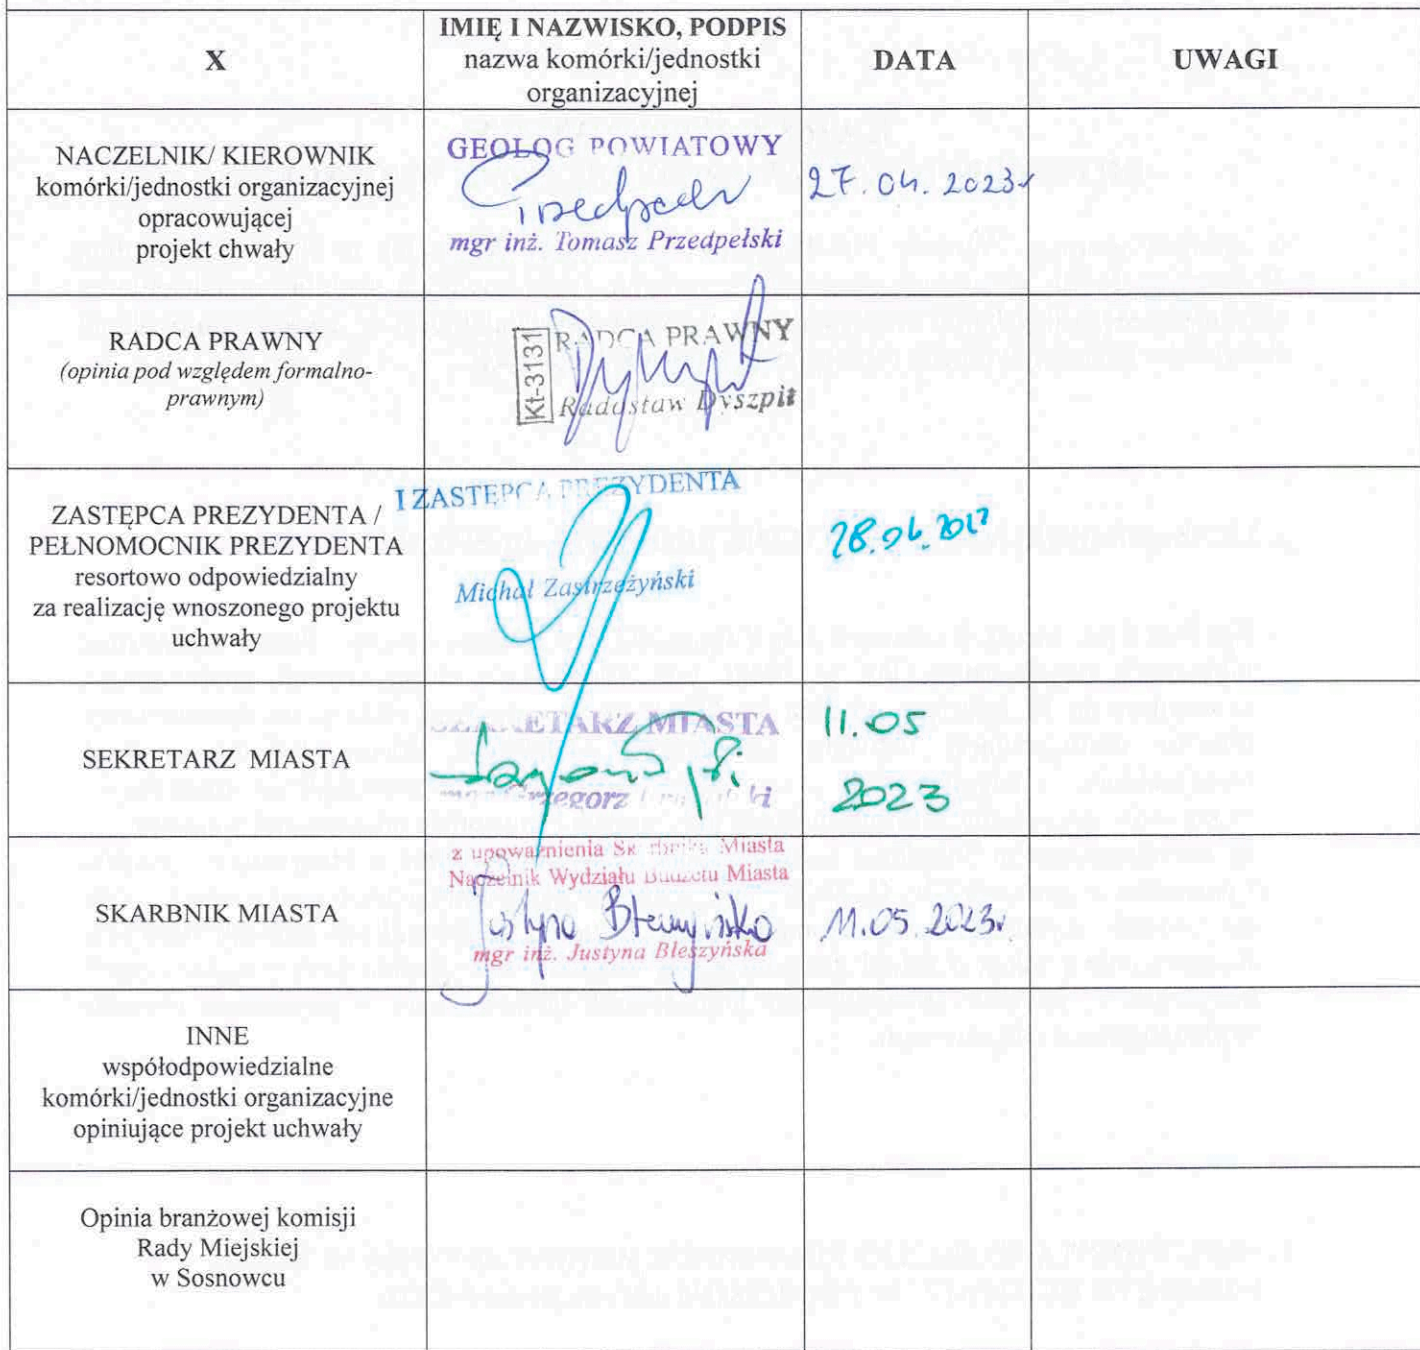 X
IMIĘ I NAZWISKO, PODPIS
nazwa komórki/jednostki
organizacyjnej
DATA
UWAGI
NACZELNIK/ KIEROWNIK
komórki/jednostki organizacyjnej
opracowującej
projekt chwały
GEOLOG POWIATOWY
mgr inż. Tomasz Przedpełski
27.04.2023r
RADCA PRAWNY
(opinia pod względem formalno-
prawnym)
Kt-3131
RADCA PRAWNY
Radosław Dyszpit
ZASTĘPCA PREZYDENTA /
PEŁNOMOCNIK PREZYDENTA
resortowo odpowiedzialny
za realizację wnoszonego projektu
uchwały
I ZASTĘPCA PREZYDENTA
Michał Zastrzeżyński
SEKRETARZ MIASTA
SEKRETARZ MIASTA
Grzegorz
11.05
2023
SKARBNIK MIASTA
z upoważnienia Skarbnika Miasta
Naczelnik Wydziału Budżetu Miasta
Justyna Błeszyńska
mgr inż. Justyna Błeszyńska
11.05.2023r
INNE
współodpowiedzialne
komórki/jednostki organizacyjne
opiniujące projekt uchwały
Opinia branżowej komisji
Rady Miejskiej
w Sosnowcu